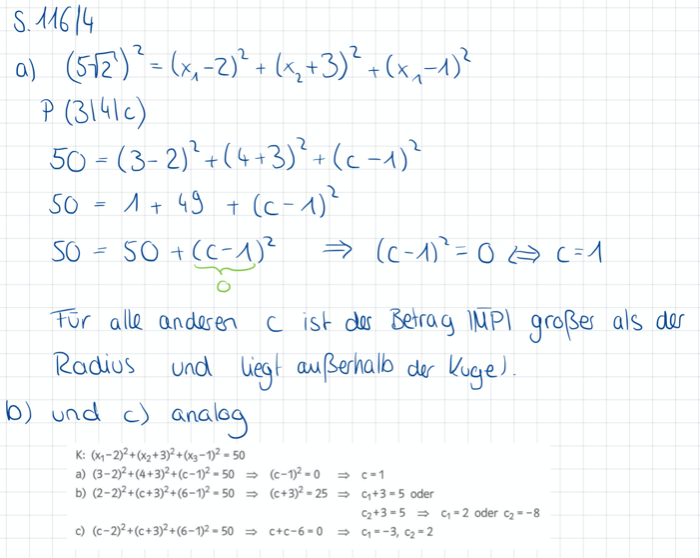 S. 116/4
a) (5√2)² = (x₁-2)² + (x₂+3)² + (x₁-1)²
P (3|4|c)
50 = (3-2)² + (4+3)² + (c-1)²
50 = 1 + 49 + (c-1)²
50 = 50 + (c-1)² ⇒ (c-1)² = 0 ⇔ c = 1
0
Für alle anderen c ist der Betrag |MP| großer als der
Radius und liegt außerhalb der Kugel.
b) und c) analog
K: (x₁-2)²+(x₂+3)²+(x₃-1)² = 50
a) (3-2)²+(4+3)²+(c-1)² = 50 ⇒ (c-1)² = 0 ⇒ c = 1
b) (2-2)²+(c+3)²+(6-1)² = 50 ⇒ (c+3)² = 25 ⇒ c₁+3 = 5 oder
c₂+3 = 5 ⇒ c₁ = 2 oder c₂ = -8
c) (c-2)²+(c+3)²+(6-1)² = 50 ⇒ c+c-6 = 0 ⇒ c₁ = -3, c₂ = 2